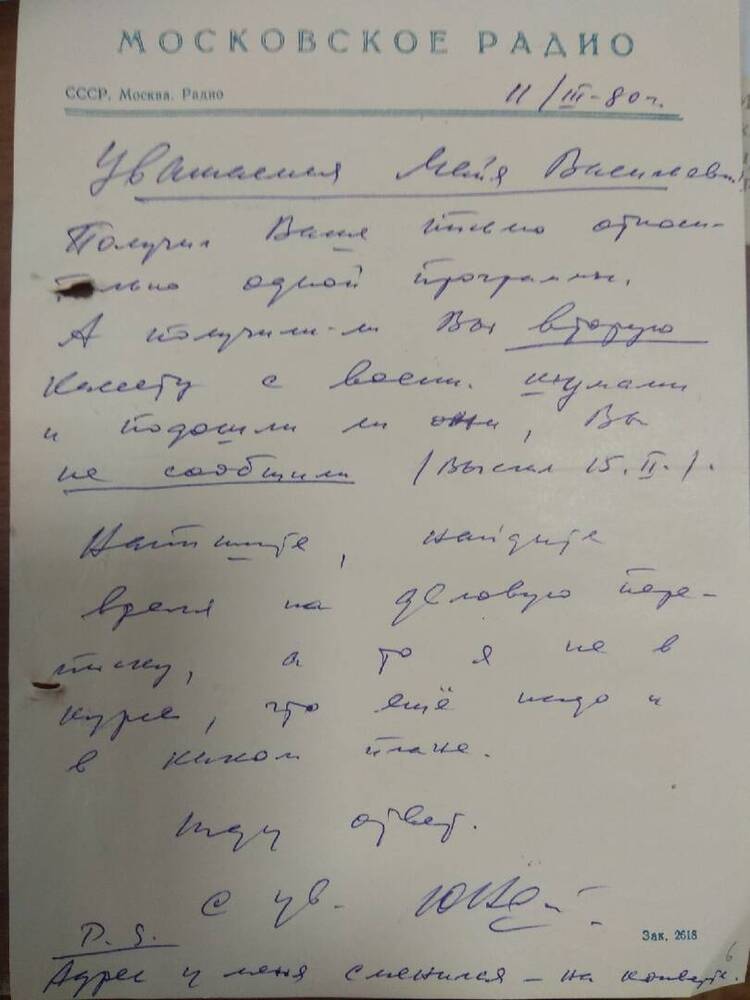 МОСКОВСКОЕ РАДИО
СССР, Москва, Радио
11/III-80 г.
Уважаемая Майя Васильевна!
Получил Ваше письмо относи-
тельно одной программы.
А получили-ли Вы вторую
кассету с воен. шумами
и подошли ли они, Вы
не сообщили (Выслал 15.II.).
Напишите, найдите
время на деловую пере-
писку, а то я не в
курсе, что ещё надо и
в каком плане.
Жду ответ.
С ув.
P.S.
Адрес у меня сменился – на конверте.
Зак. 2618
6